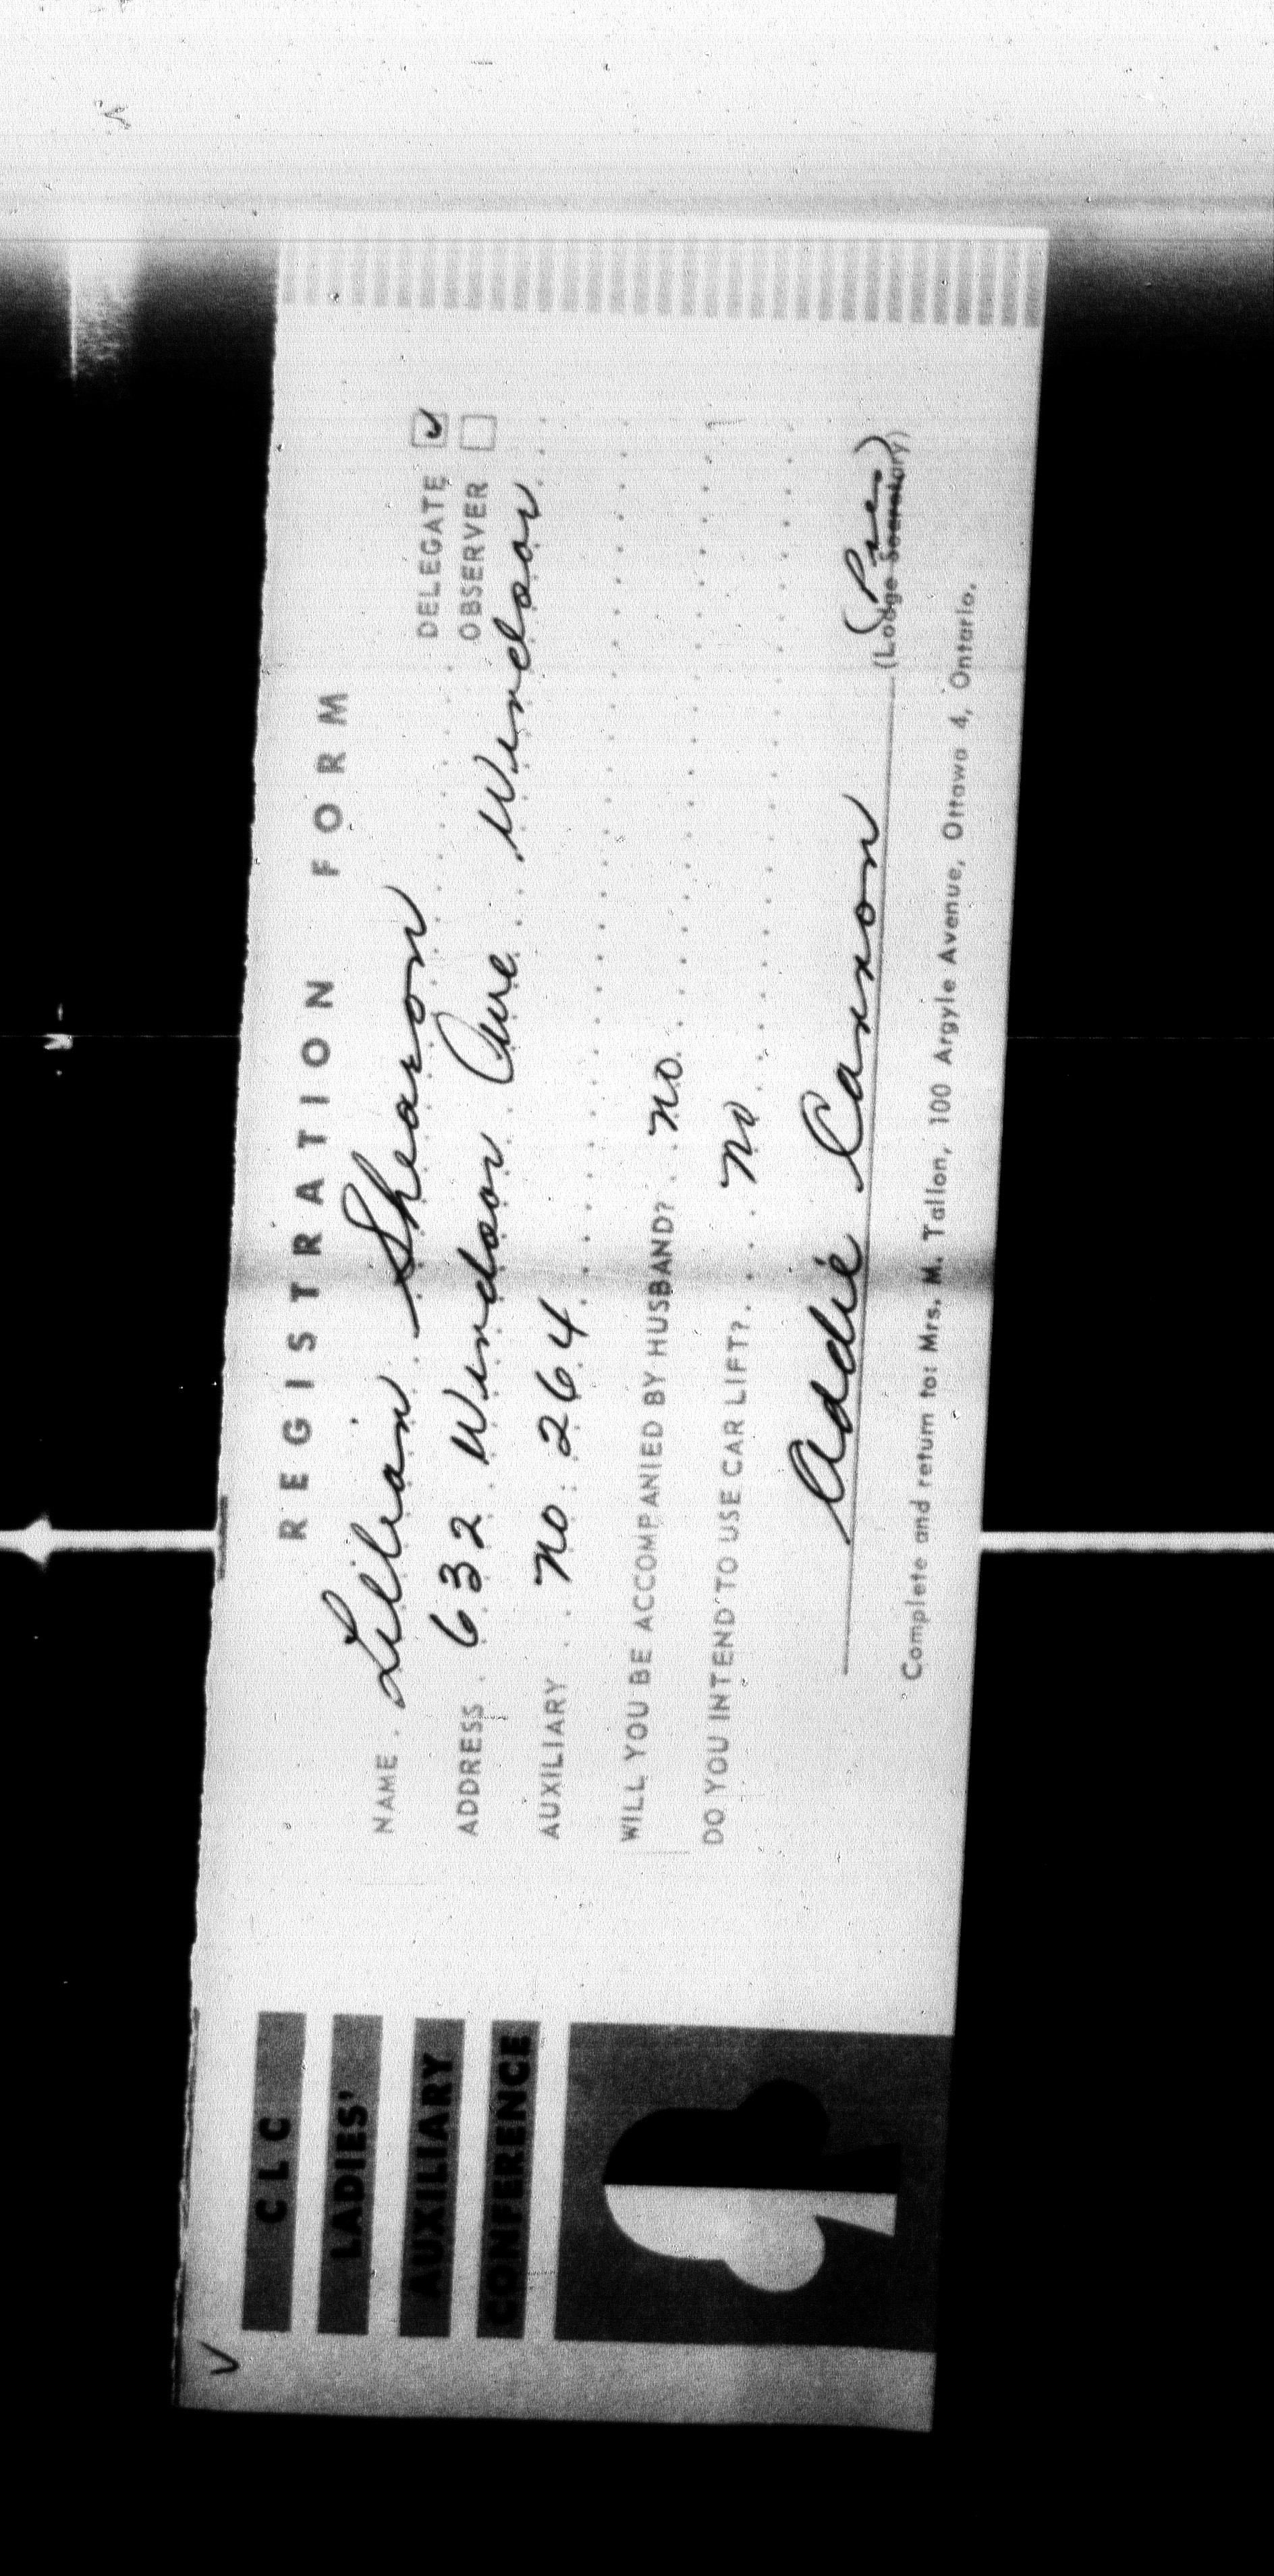 CLC
LADIES'
AUXILIARY
CONFERENCE
REGISTRATION FORM
NAME . Lillian Shearon DELEGATE ✓
ADDRESS . 632 Windsor Ave. Windsor OBSERVER
AUXILIARY . . no. 264
WILL YOU BE ACCOMPANIED BY HUSBAND? . . no.
DO YOU INTEND TO USE CAR LIFT? . . . . no
Addie Caxon (Pres)
(Lodge Secretary)
Complete and return to: Mrs. M. Tallon, 100 Argyle Avenue, Ottawa 4, Ontario.